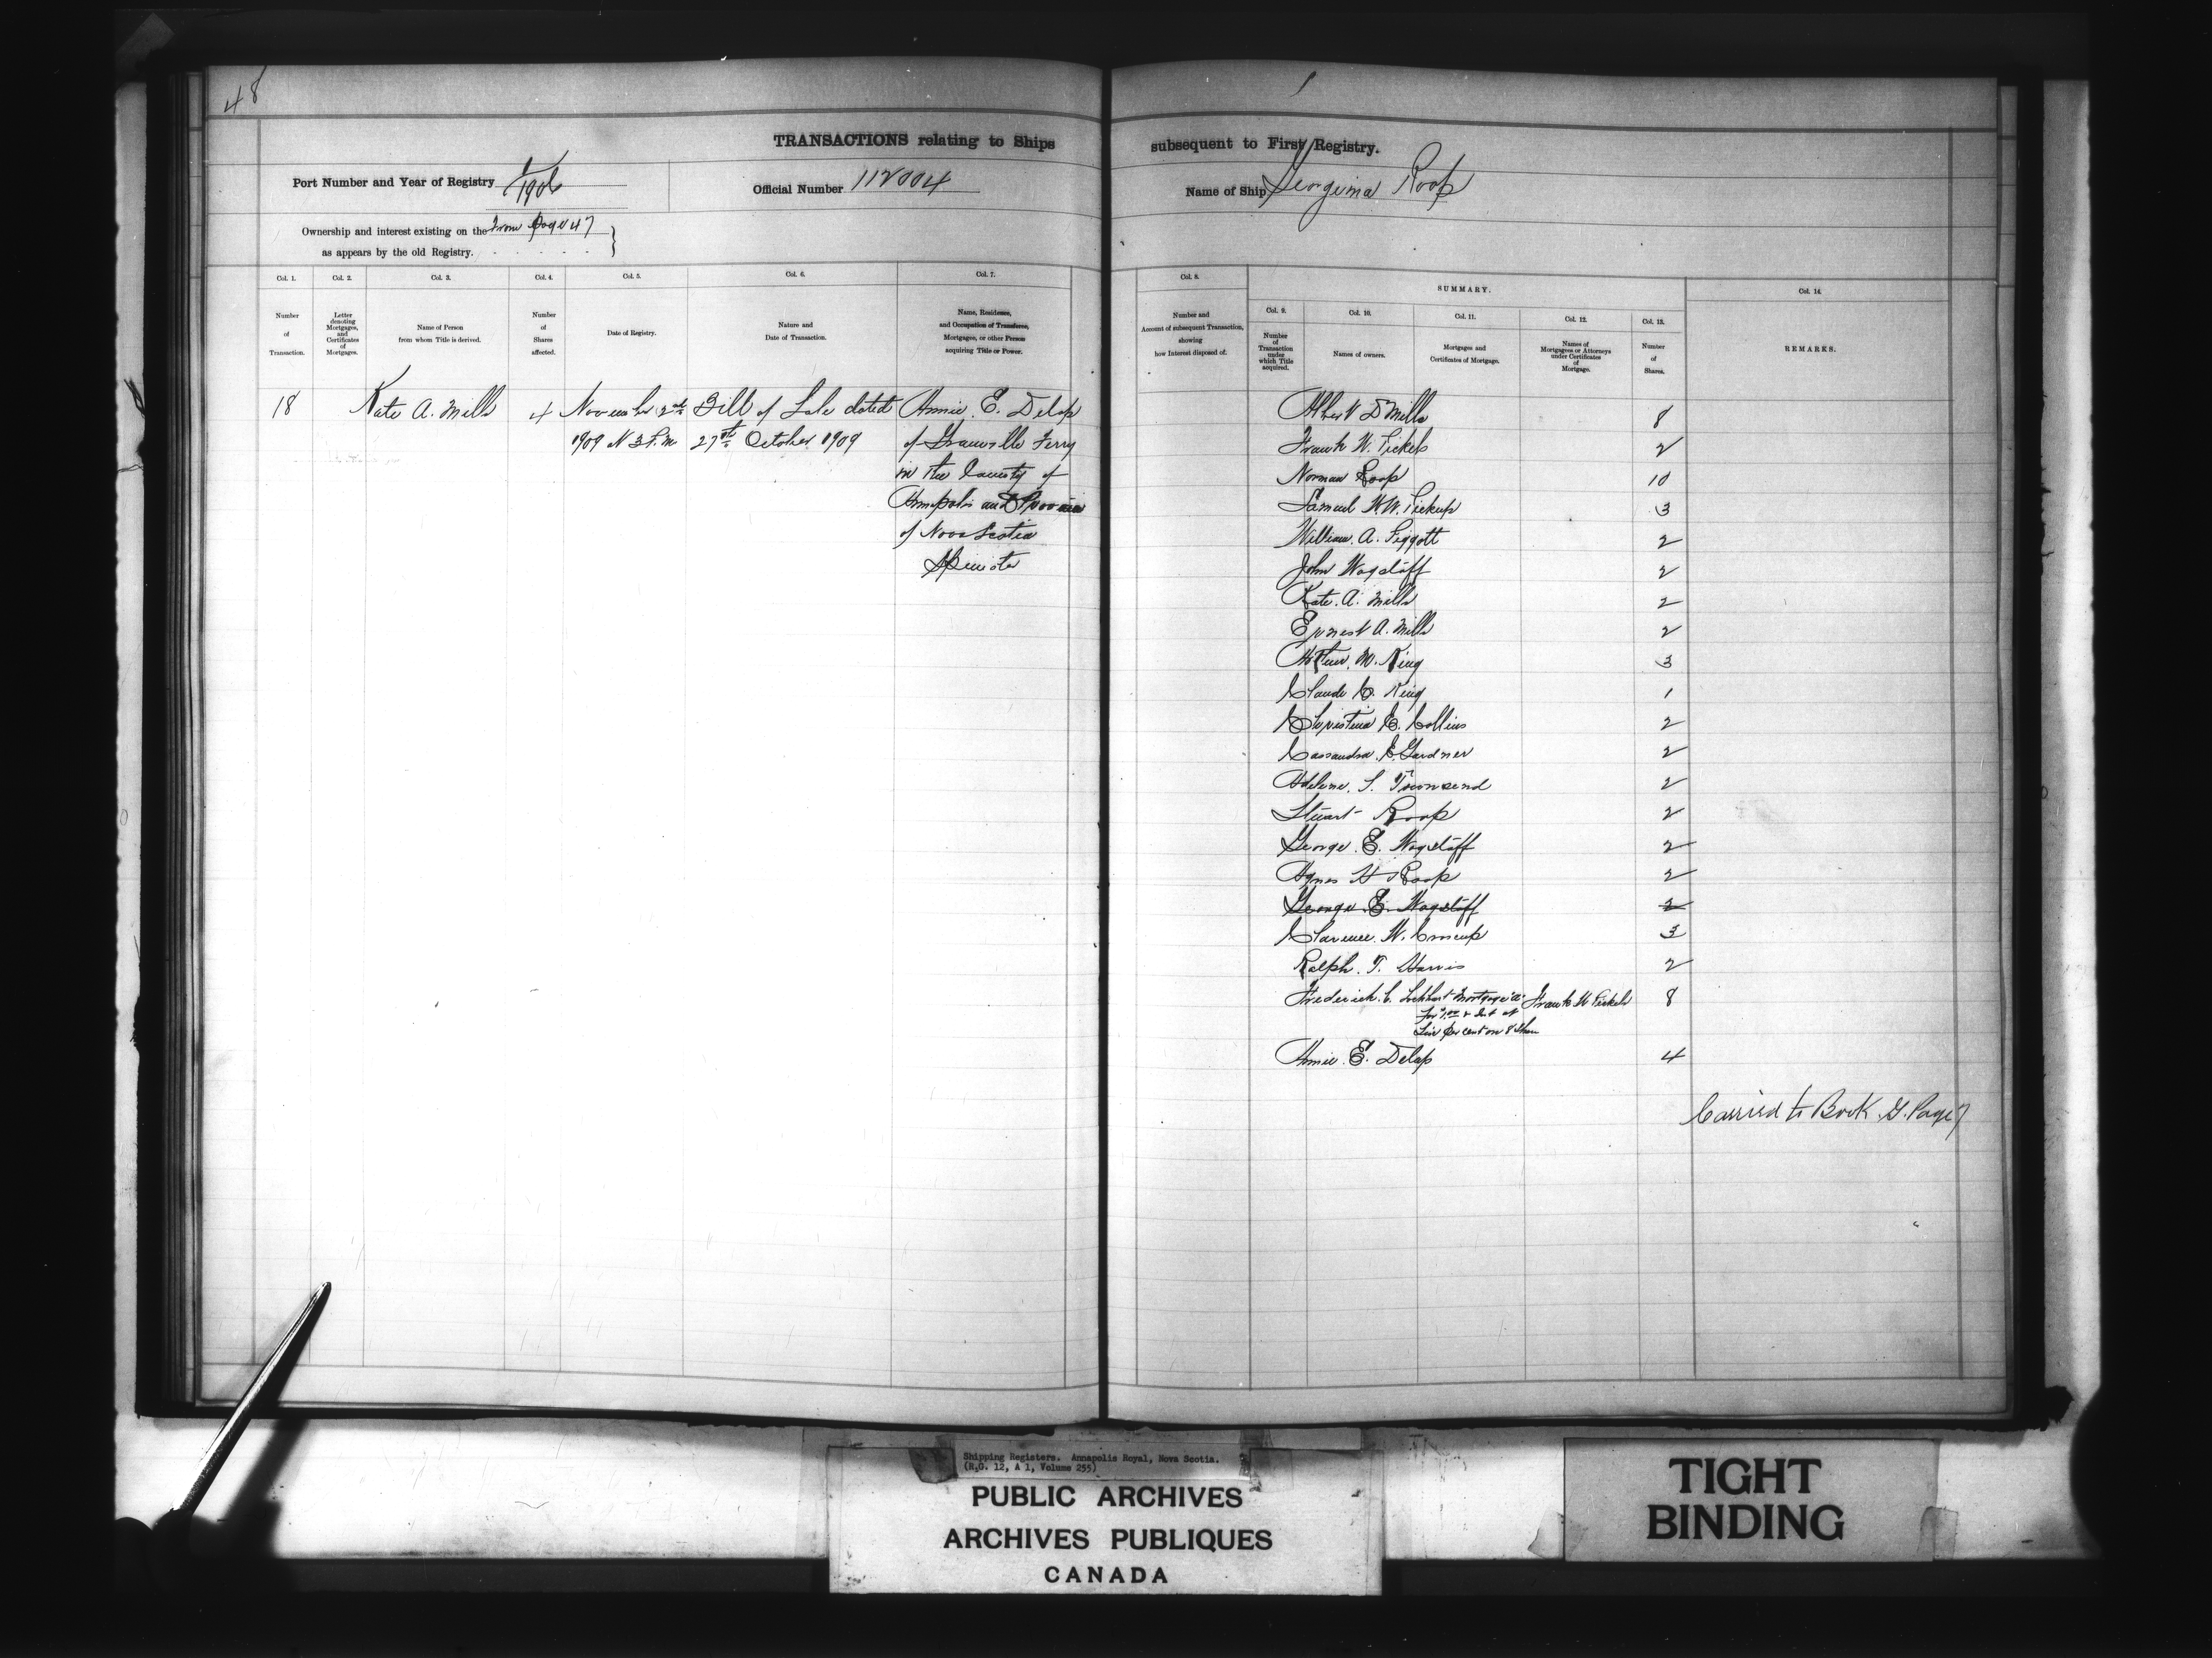 48
1
TRANSACTIONS relating to Ships
subsequent to First Registry.
Port Number and Year of Registry 1/1906
Official Number 112004
Name of Ship Georgina Roop
Ownership and interest existing on the From Page 47
as appears by the old Registry.
Col. 1.
Number
of
Transaction.
Col. 2.
Letter
denoting
Mortgages,
and
Certificates
of
Mortgages.
Col. 3.
Name of Person
from whom Title is derived.
Col. 4.
Number
of
Shares
affected.
Col. 5.
Date of Registry.
Col. 6.
Nature and
Date of Transaction.
Col. 7.
Name, Residence,
and Occupation of Transferee,
Mortgagee, or other Person
acquiring Title or Power.
Col. 8.
Number and
Account of subsequent Transaction,
showing
how Interest disposed of.
SUMMARY.
Col. 9.
Number
of
Transaction
under
which Title
acquired.
Col. 10.
Names of owners.
Col. 11.
Mortgages and
Certificates of Mortgage.
Col. 12.
Names of
Mortgagees or Attorneys
under Certificates
of
Mortgage.
Col. 13.
Number
of
Shares.
Col. 14.
REMARKS.
18 Kate A. Mills 4 November 2nd Bill of Sale dated Annie E. Delap
1909 at 3 P.M. 27th October 1909 of Granville Ferry
in the County of
Annapolis and Province
of Nova Scotia
Albert D Mills 8
Frank W. Pickels 2
Norman Roop 10
Samuel W.W. Pickup 3
William A. Piggott 2
John Wagstaff 2
Kate A. Mills 2
Ernest A. Mills 2
Arthur M. King 3
Claude C. King 1
Christina C. Collins 2
Cassandra E. Gardner 2
Adelene S. Townsend 2
Stuart Roop 2
George E. Wagstaff 2
Agnes H Roop 2
George E. Wagstaff 2
Clarence W. Croscup 3
Ralph T. Harris 2
Frederick C. Lockhart Mortgage "A" Frank W Pickels 8
per cent on 8 shares
Annie E. Delap 4
Carried to Book G. Page 7
Shipping Registers. Annapolis Royal, Nova Scotia.
(R.G. 12, A 1, Volume 255)
PUBLIC ARCHIVES
ARCHIVES PUBLIQUES
CANADA
TIGHT
BINDING